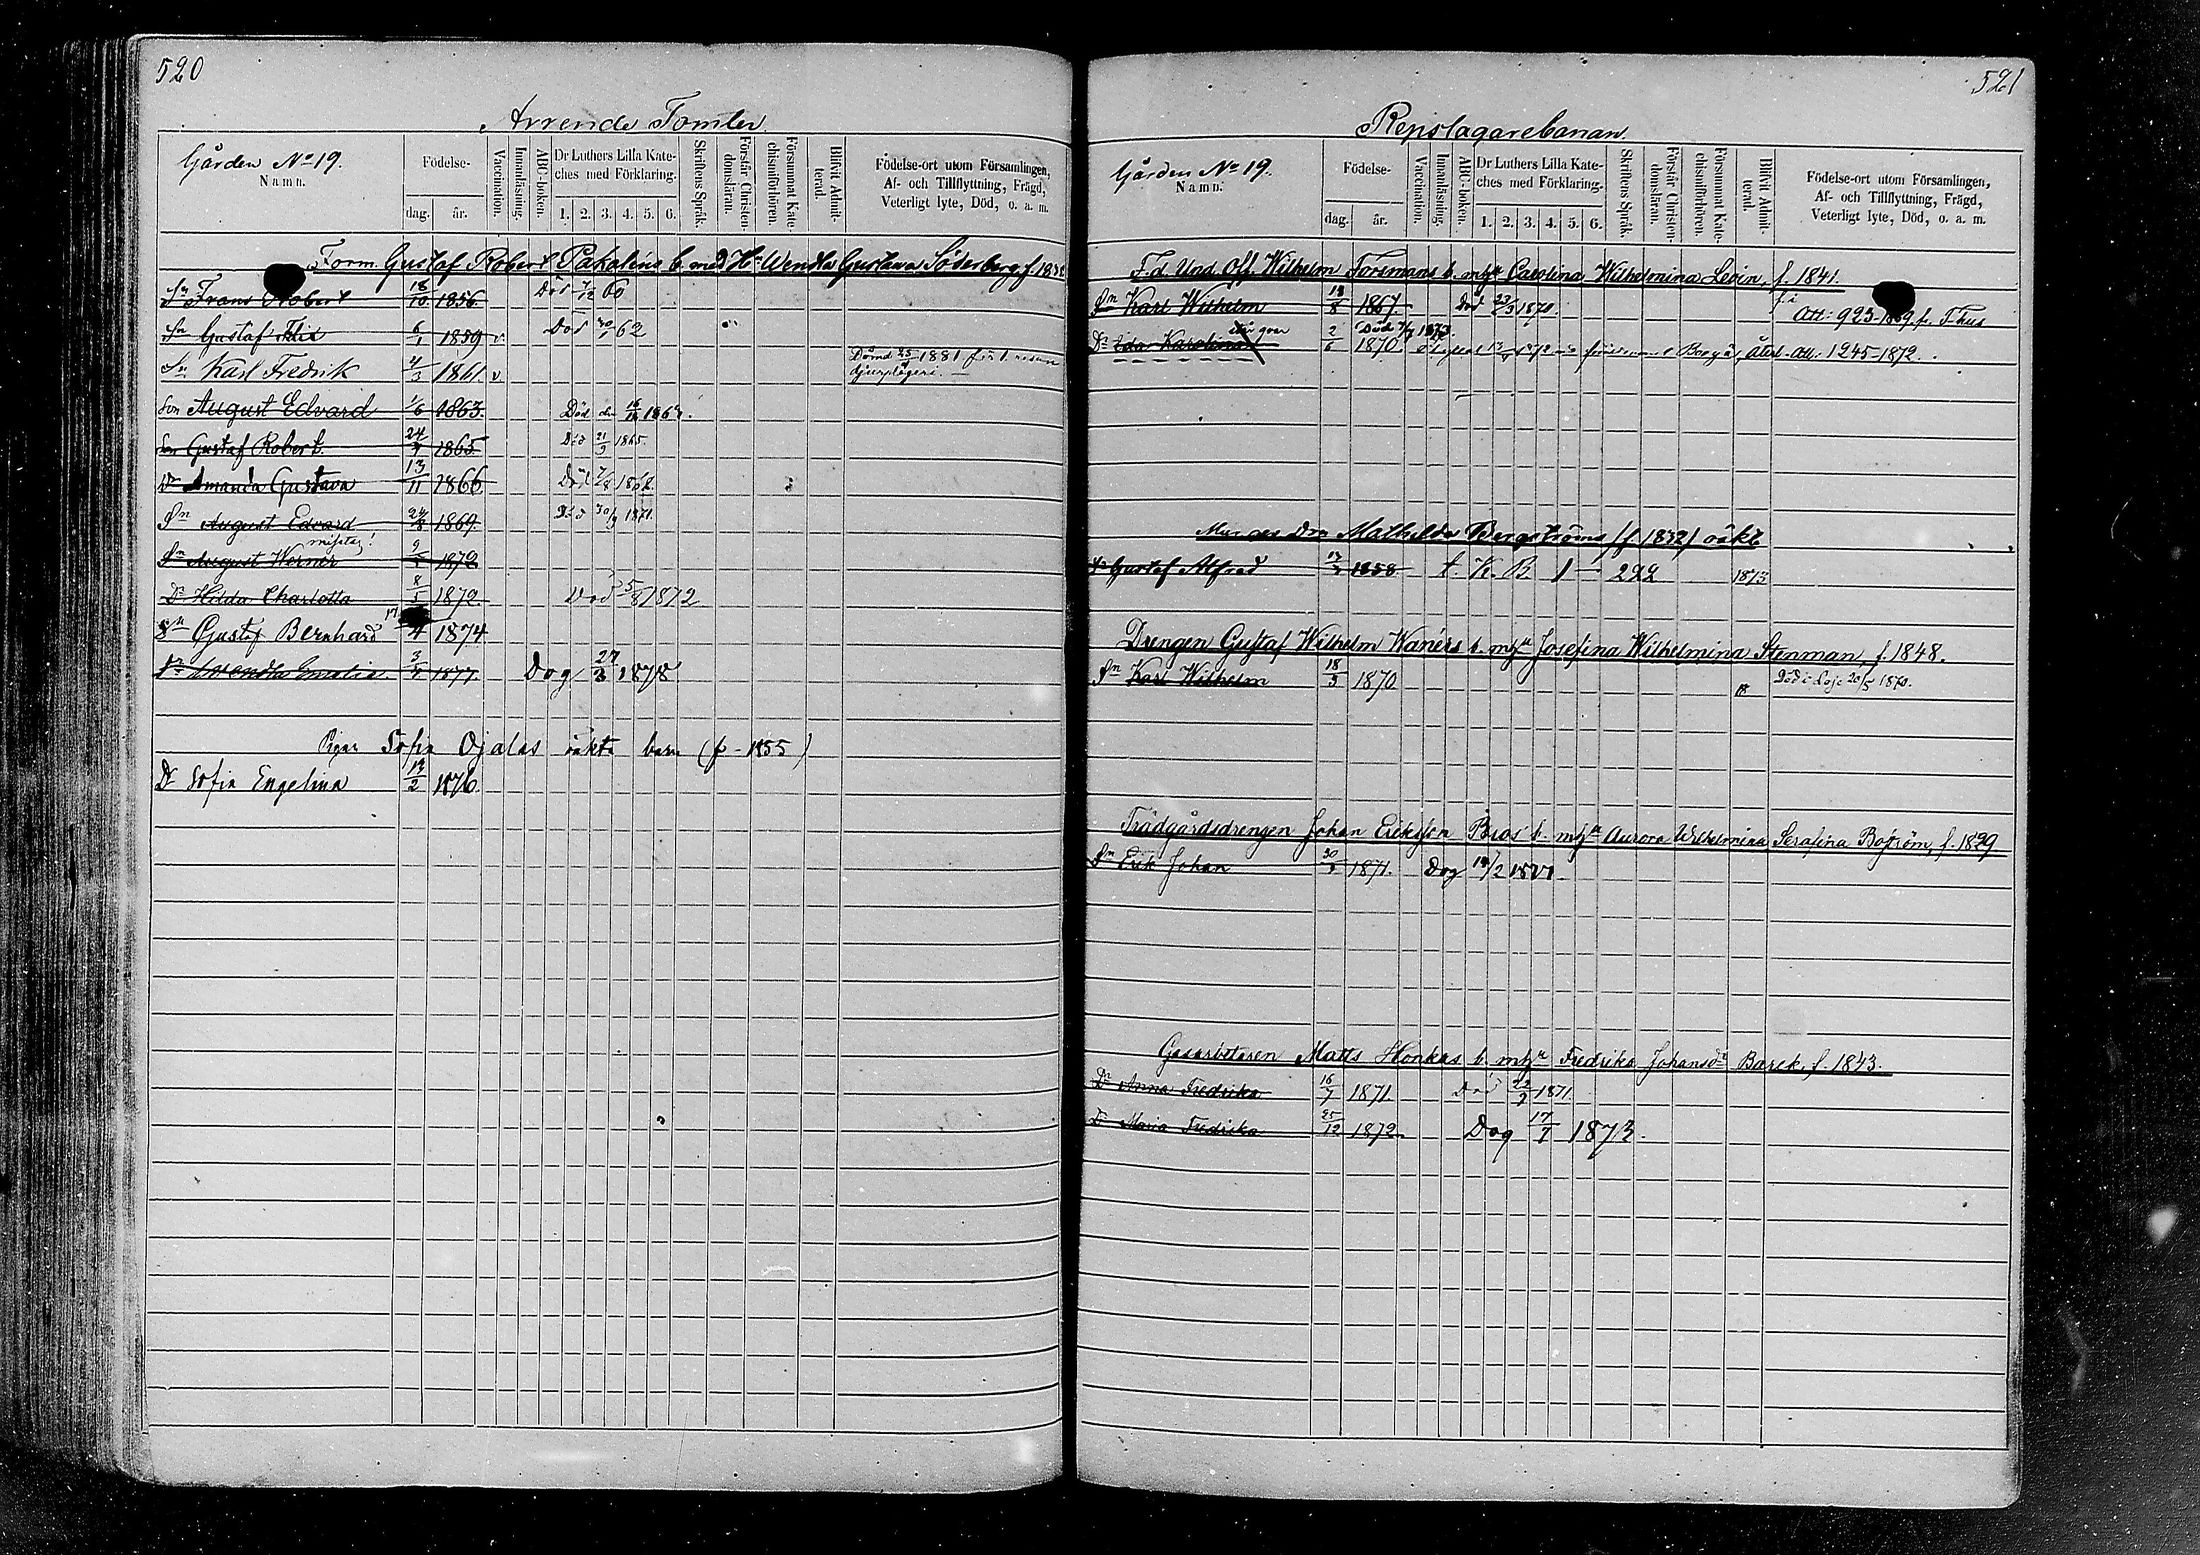 520
Arrende Tomter
Gården No 19.
Namn.
Födelse-
dag.
år.
Vaccination.
Innanläsning.
ABC-boken.
Dr Luthers Lilla Kate-
ches med Förklaring.
1. 2. 3. 4. 5. 6.
Skriftens Språk.
Förstår Christen-
domsläran.
Försummat Kate-
chismiförhören.
Blifvit Admit-
terad.
Födelse-ort utom Församlingen,
Af- och Tillflyttning, Frägd,
Veterligt lyte, Död, o. a. m.
Form. Gustaf Robert b. med Hu Wendla Gustava Söderberg f.
Sn Frans Robert 18/10 1856. Död 7/12 60
Sn Gustaf 6/1 1859 v. Död 30/1 62
Sn Karl Fredrik 4/3 1861. v Dömd 1881 för
djurplågeri.
Son August Edvard 1/6 1863. Död den
Son Gustaf Robert. 1865 Död 21/9 1865.
Dr Amanda Gustava 13/11 1866 Död
Sn August Edvard 1869. Död 1871.
misstag!
Sn August Werner 1872
Dr Hilda Charlotta 8/5 1872. Död 5/8 1872
Sn Gustaf Bernhard 17/4 1874
Emelia 1877 Dog 27/3 1878
Pigan Sofia Ojalas oäkta barn (f. 1855)
Dr Sofia Engelina 13/2 1876.
521
Repslagarebanan.
Gården No 19.
Namn.
Födelse-
dag.
år.
Vaccination.
Innanläsning.
ABC-boken.
Dr Luthers Lilla Kate-
ches med Förklaring.
1. 2. 3. 4. 5. 6.
Skriftens Språk.
Förstår Christen-
domsläran.
Försummat Kate-
chismiförhören.
Blifvit Admit-
terad.
Födelse-ort utom Församlingen,
Af- och Tillflyttning, Frägd,
Veterligt lyte, Död, o. a. m.
F.d. Und. Off. Wilhelm Forsmans b. m hu Carolina Wilhelmina Levin, f. 1841.
Sn Karl Wilhelm 1867. Död 23/3 1870. Att: 923-1869 fr. T-hus
Dr Ida Karolina 2/6 1870 Död 1873. Att: 1245-1872.
Mathilda Bergströms (f. 1832) oäkt.
Gustaf Alfred 1858 t. K. B. 1 — 292 1873
Drengen Gustaf Wilhelm Wanérs b. m hu Josefina Wilhelmina Stenman, f. 1848.
Sn Karl Wilhelm 18/3 1870 Död i Lojo 20/5 1870.
Trädgårdsdrengen Johan Eriksson b. m hu Aurora Wilhelmina Serafina f.
Sn Erik Johan 1871. Dog
Gasarbetaren Matts Honkas b. m hu Fredrika Johansdr f. 1843.
Dr Anna Fredrika 16/7 1871 Död 22/7 1871.
Dr Maria Fredrika 25/12 1872 Dog 17/7 1873.